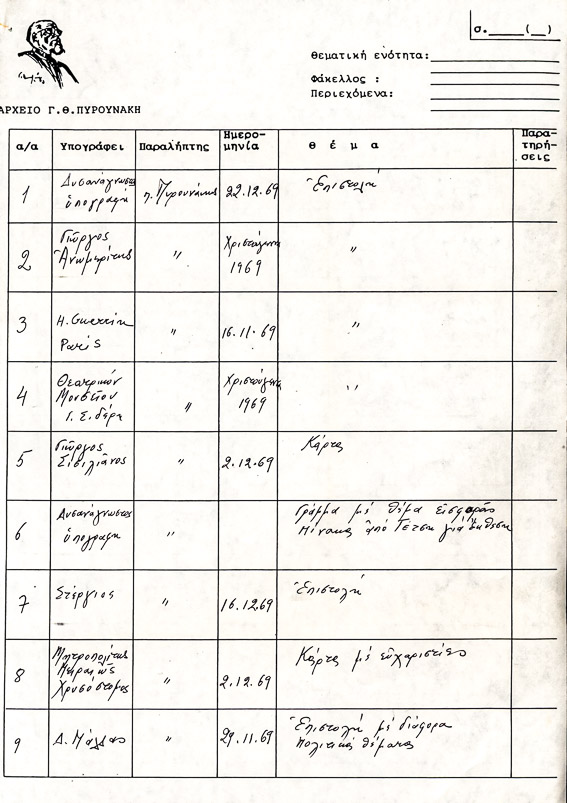 σ.____(__)
Θεματική ενότητα:
Φάκελλος :
Περιεχόμενα:
ΑΡΧΕΙΟ Γ.Θ.ΠΥΡΟΥΝΑΚΗ
α/α Υπογράφει Παραλήπτης Ημερο-μηνία θ έ μ α Παρα-τηρή-σεις
1 Δυσανάγνωστη ὑπογραφή π. Πυρουνάκης 22.12.69 Ἐπιστολή
2 Γιῶργος Ἀνωμερίτης " Χριστούγεννα 1969 "
3 H. Guerrin Paris " 16.11.69 "
4 Θεατρικόν Μουσεῖον Γ. Σιδέρη " Χριστούγεννα 1969 "
5 Γιῶργος Σισιλιάνος " 2.12.69 Κάρτα
6 Δυσανάγνωστος ὑπογραφή " Γράμμα μέ θέμα εἰσφορᾶς
Πίνακα ἀπό Τέτση γιά ἔκθεση
7 Στέργιος " 16.12.69 Ἐπιστολή
8 Μητροπολίτης Πειραιῶς Χρυσόστομος " 2.12.69 Κάρτα μέ εὐχαριστίες
9 Δ. " 29.11.69 Ἐπιστολή μέ διάφορα
πολιτικά θέματα